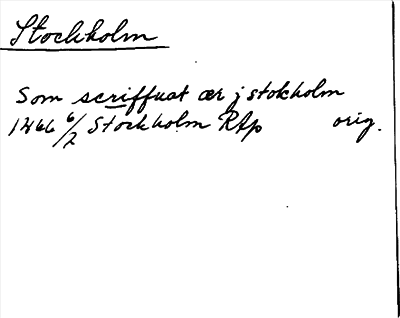 Stockholm
Som scriffuat ær j stokholm
1466 6/2 Stockholm RAp orig.